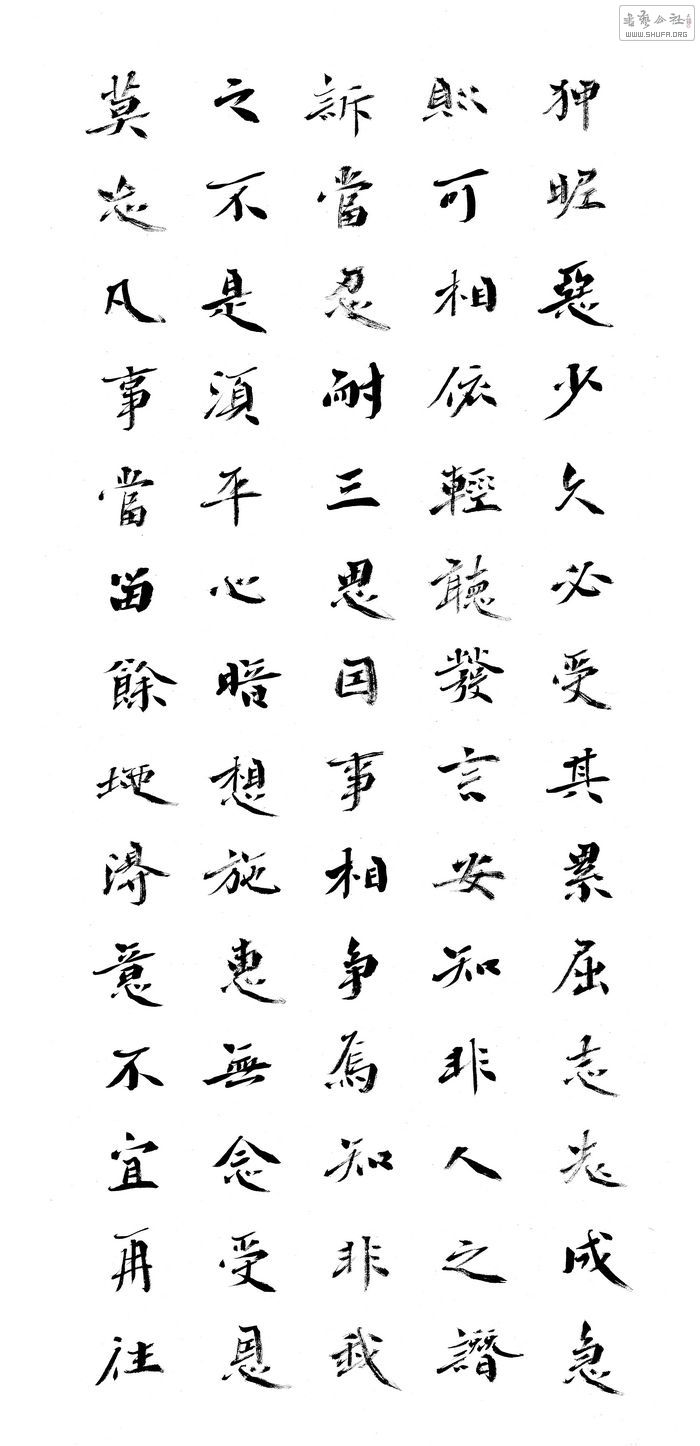 狎昵惡少久必受其累屈志老成急
則可相依輕聽發言安知非人之譖
訴當忍耐三思因事相争焉知非我
之不是須平心暗想施惠無念受恩
莫忘凡事當留餘地得意不宜再往
書藝公社
WWW.SHUFA.ORG